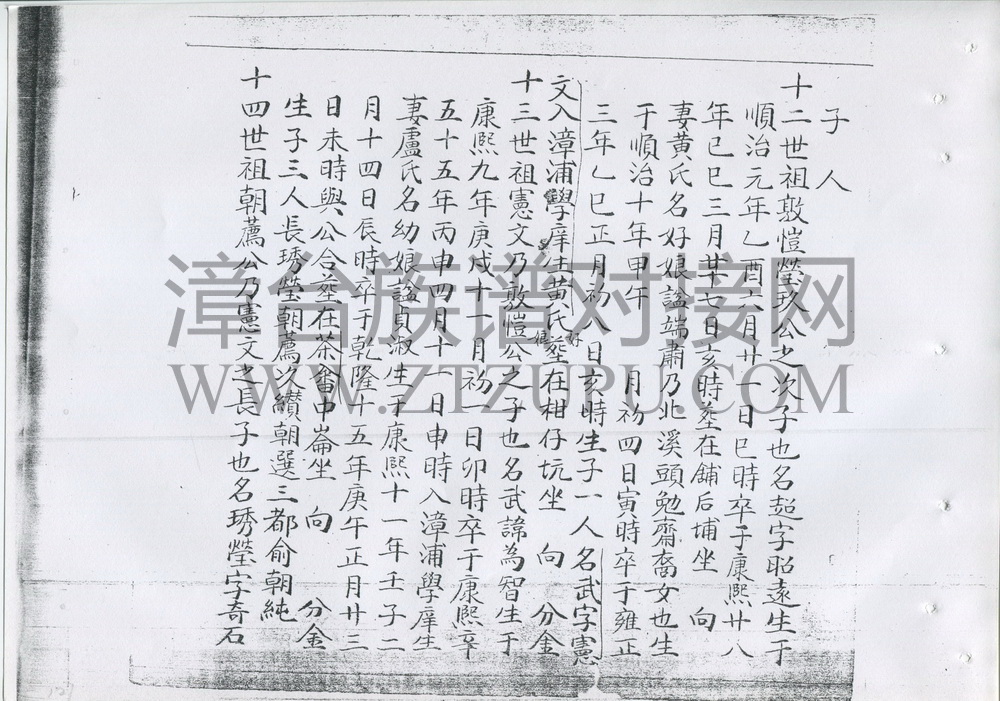 子人
十二世祖敦愷瑩玖公之次子也名超字昭遠生于
順治元年乙酉六月廿一日巳時卒于康熙廿八
年己巳三月廿七日亥時塟在鋪后埔坐 向
妻黃氏名好娘謚端肅乃北溪頭勉齋裔女也生
于順治十年甲午 月初四日寅時卒于雍正
三年乙巳正月初八日亥時生子一人名武字憲
文入漳浦學庠生黃氏好娘塟在柑仔坑坐 向 分金
十三世祖憲文乃敦愷公之子也名武諱為智生于
康熙九年庚戌十一月初一日卯時卒于康熙辛
五十五年丙申四月十一日申時入漳浦學庠生
妻盧氏名幼娘謚貞淑生于康熙十一年壬子二
月十四日辰時卒于乾隆十五年庚午正月廿三
日未時與公合塟在茶畬中崙坐 向 分金
生子三人長琇瑩朝薦次纘朝選三都俞朝純
十四世祖朝薦公乃憲文之長子也名琇瑩字奇石
漳台族谱对接网
WWW.ZTZUPU.COM